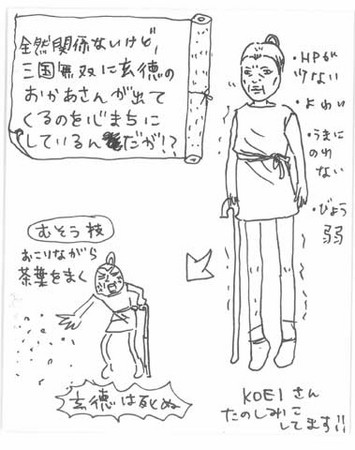 全然関係ないけど、
三国無双に玄徳の
おかあさんが出て
くるのを心まちに
しているんだが!?
・HPが
少ない
・よわい
・うまに
のれ
ない
・びょう
弱
むそう技
おこりながら
茶葉をまく
玄徳は死ぬ
KOEIさん
たのしみに
してます!!